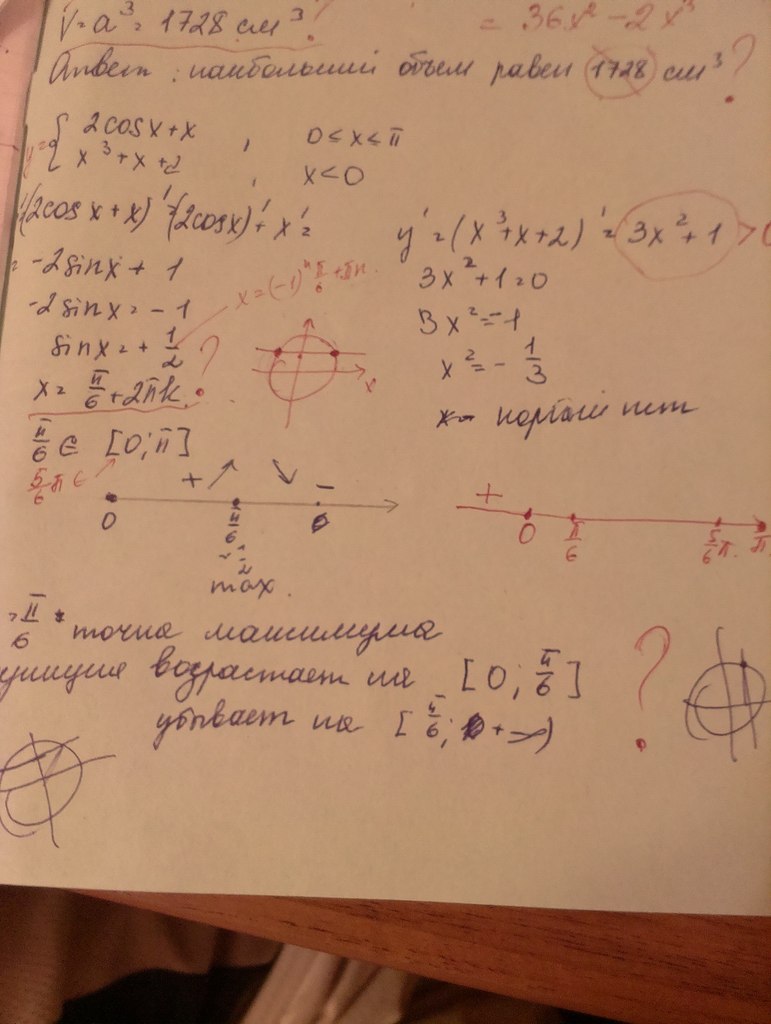 V = a³ = 1728 см³ ?
= 36x² - 2x³
Ответ: наибольший объем равен 1728 см³ ?
y = { 2cosx + x , 0 ≤ x ≤ π
x³ + x + 2 , x < 0
(2cos x + x)' = (2cosx)' + x' =
= -2sinx + 1
-2sinx = -1
sinx = + 1/2
x = (-1)ⁿ π/6 + πn.
x = π/6 + 2πk ?
x
π/6 ∈ [0; π]
5/6 π ∈
+ -
0 π/6
max.
y' = (x³ + x + 2)' = 3x² + 1 > 0
3x² + 1 = 0
3x² = -1
x² = - 1/3
нет
+
0 π/6 5/6 π. π
π/6 точка максимума
возрастает на [0; π/6]
убывает на [π/6; + ∞)
?